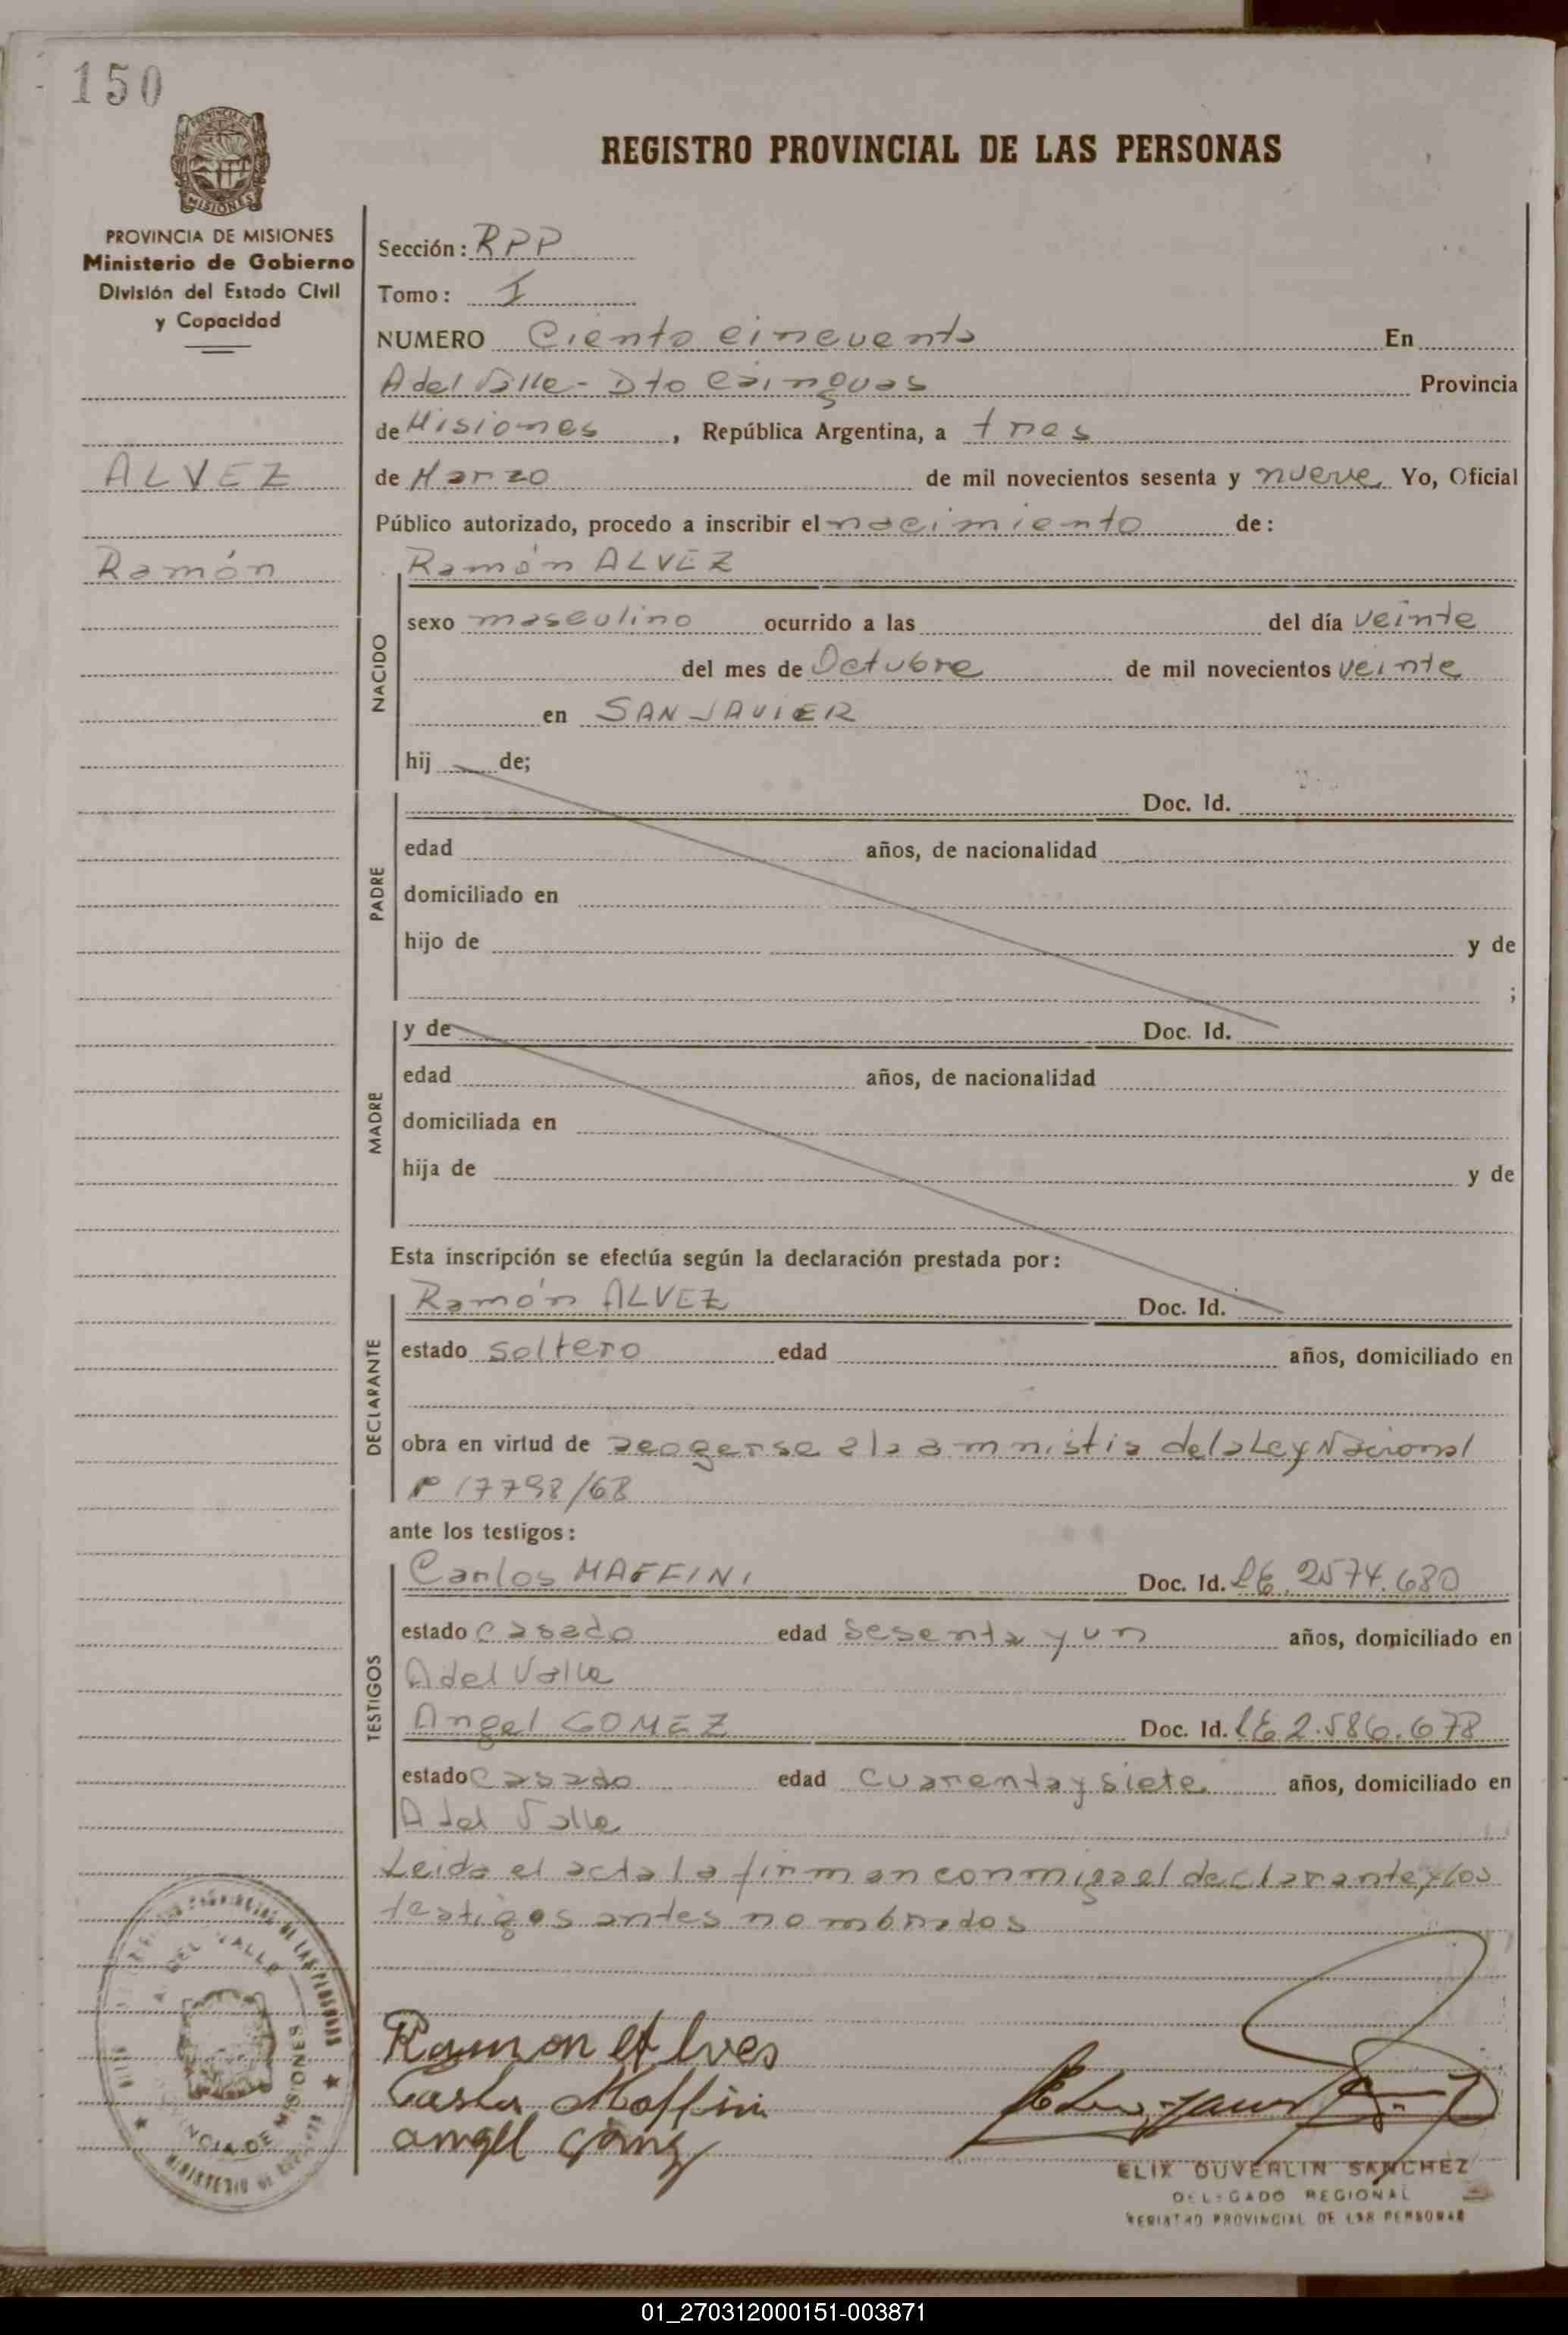 150
PROVINCIA DE MISIONES
Ministerio de Gobierno
División del Estado Civil
y Capacidad
ALVEZ
Ramón
REGISTRO PROVINCIAL DE LAS PERSONAS
Sección: RPP
Tomo: I
NUMERO Ciento cincuenta En
A del Valle - Dto Cainguas Provincia
de Misiones, República Argentina, a tres
de Marzo de mil novecientos sesenta y nueve Yo, Oficial
Público autorizado, procedo a inscribir el nacimiento de:
Ramón ALVEZ
NACIDO
sexo masculino ocurrido a las del día veinte
del mes de Octubre de mil novecientos veinte
en SAN JAVIER
hij de;
PADRE
Doc. Id.
edad años, de nacionalidad
domiciliado en
hijo de y de
;
MADRE
y de Doc. Id.
edad años, de nacionalidad
domiciliada en
hija de y de
Esta inscripción se efectúa según la declaración prestada por:
DECLARANTE
Ramón ALVEZ Doc. Id.
estado soltero edad años, domiciliado en
obra en virtud de acogerse a la amnistia de la Ley Nacional
17798/68
ante los testigos:
TESTIGOS
Carlos MAFFINI Doc. Id. LE 2574.680
estado casado edad sesenta y un años, domiciliado en
A del Valle
Angel GOMEZ Doc. Id. LE 2.586.678
estado casado edad cuarenta y siete años, domiciliado en
A del Valle
Leida el acta la firman conmigo el declarante y los
testigos antes nombrados
DEL VALLE
Ramon Alves
Carlos Maffini
angel gomez
ELIX DUVERLIN SANCHEZ
DELEGADO REGIONAL
REGISTRO PROVINCIAL DE LAS PERSONAS
01_270312000151-003871